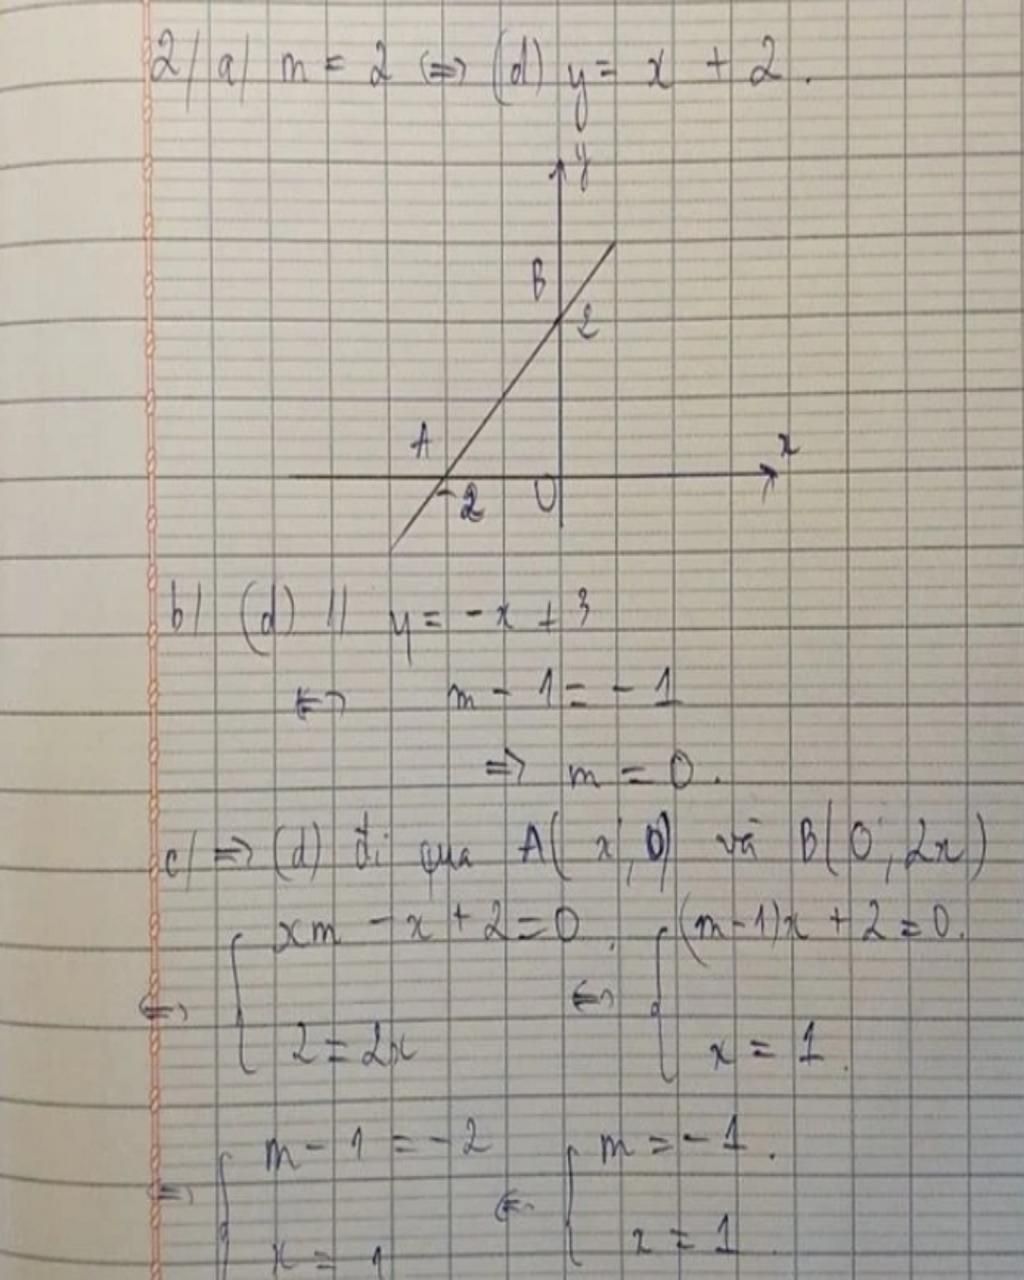 2/ a/ m = 2 <=> (d) y = x + 2.
y
B
2
A
x
-2 O
b/ (d) // y = -x + 3
<=> m - 1 = -1
=> m = 0.
c/ => (d) đi qua A(x; 0) và B(0; 2x)
<=> { xm - x + 2 = 0 <=> { (m-1)x + 2 = 0.
2 = 2x x = 1.
<=> { m - 1 = -2 <=> { m = -1.
x = 1 x = 1.